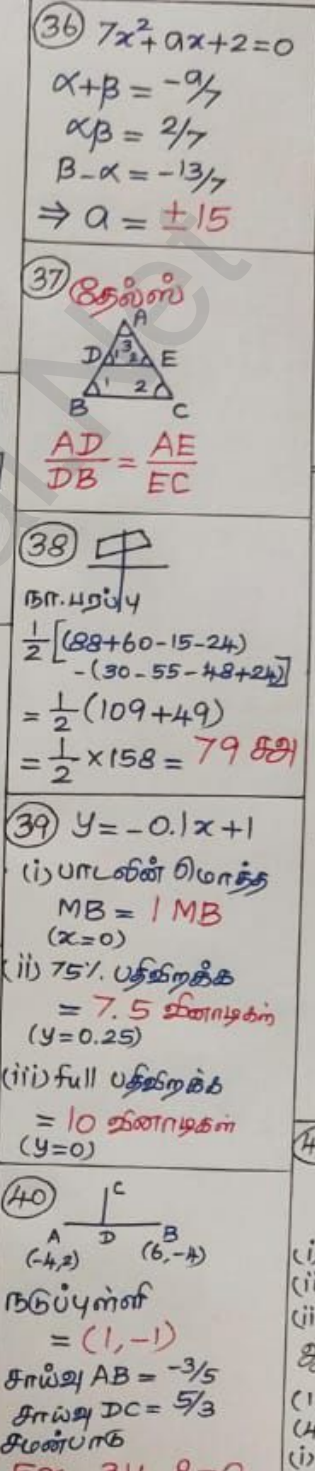 36 7x²+ax+2=0
α+β = -a/7
αβ = 2/7
β-α = -13/7
⇒ a = ±15
37 தேல்ஸ்
A
D 1 3 2 E
1 2
B C
AD/DB = AE/EC
38
நா.பரப்பு
1/2[(88+60-15-24)
-(30-55-48+24)]
= 1/2(109+49)
= 1/2×158 = 79 சஅ
39 y = -0.1x+1
(i) பாடலின் மொத்த
MB = 1 MB
(x=0)
(ii) 75% பதிவிறக்க
= 7.5 வினாடிகள்
(y=0.25)
(iii) full பதிவிறக்க
= 10 வினாடிகள்
(y=0)
40 C
A D B
(-4,2) (6,-4)
நடுப்புள்ளி
= (1,-1)
சாய்வு AB = -3/5
சாய்வு DC = 5/3
சமன்பாடு